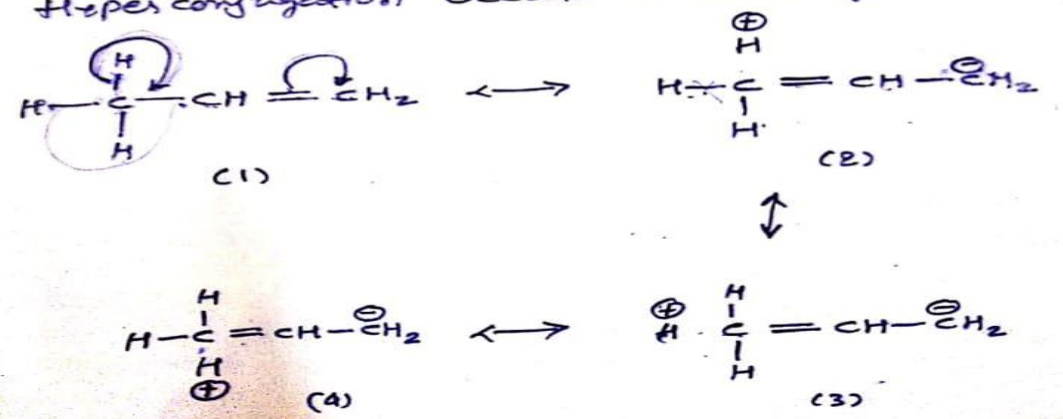 Hyperconjugation
H
H — C — CH = CH₂ ⟷
H
(1)
⊕
H
H — C = CH — C̈H₂ ⊖
H
(2)
↕
H
H — C = CH — C̈H₂ ⊖ ⟷
H
⊕
(4)
H
⊕ H C = CH — C̈H₂ ⊖
H
(3)